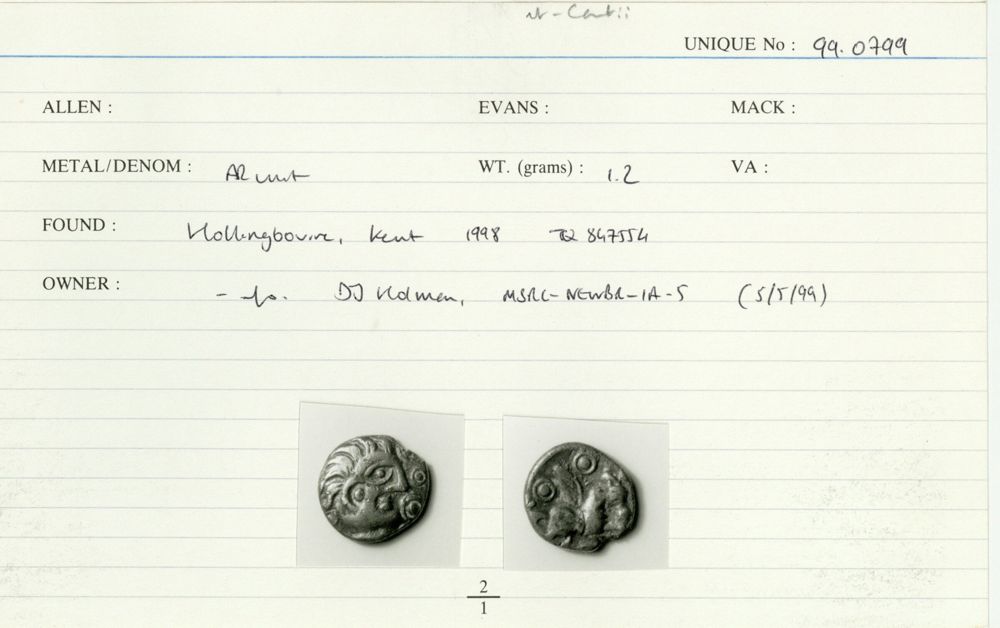 UNIQUE No : 99.0799
ALLEN : EVANS : MACK :
METAL/DENOM : AR unit WT. (grams) : 1.2 VA :
FOUND : Hollingbourne, Kent 1998 TQ 847554
OWNER : DJ Holman, MSRC-NEWBR-IA-5 (5/5/99)
2
1